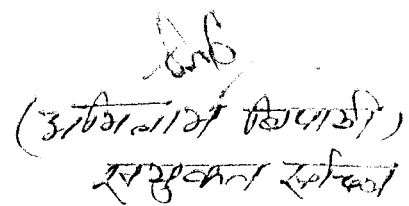 (अभिलाष त्रिपाठी)
संयुक्त सचिव